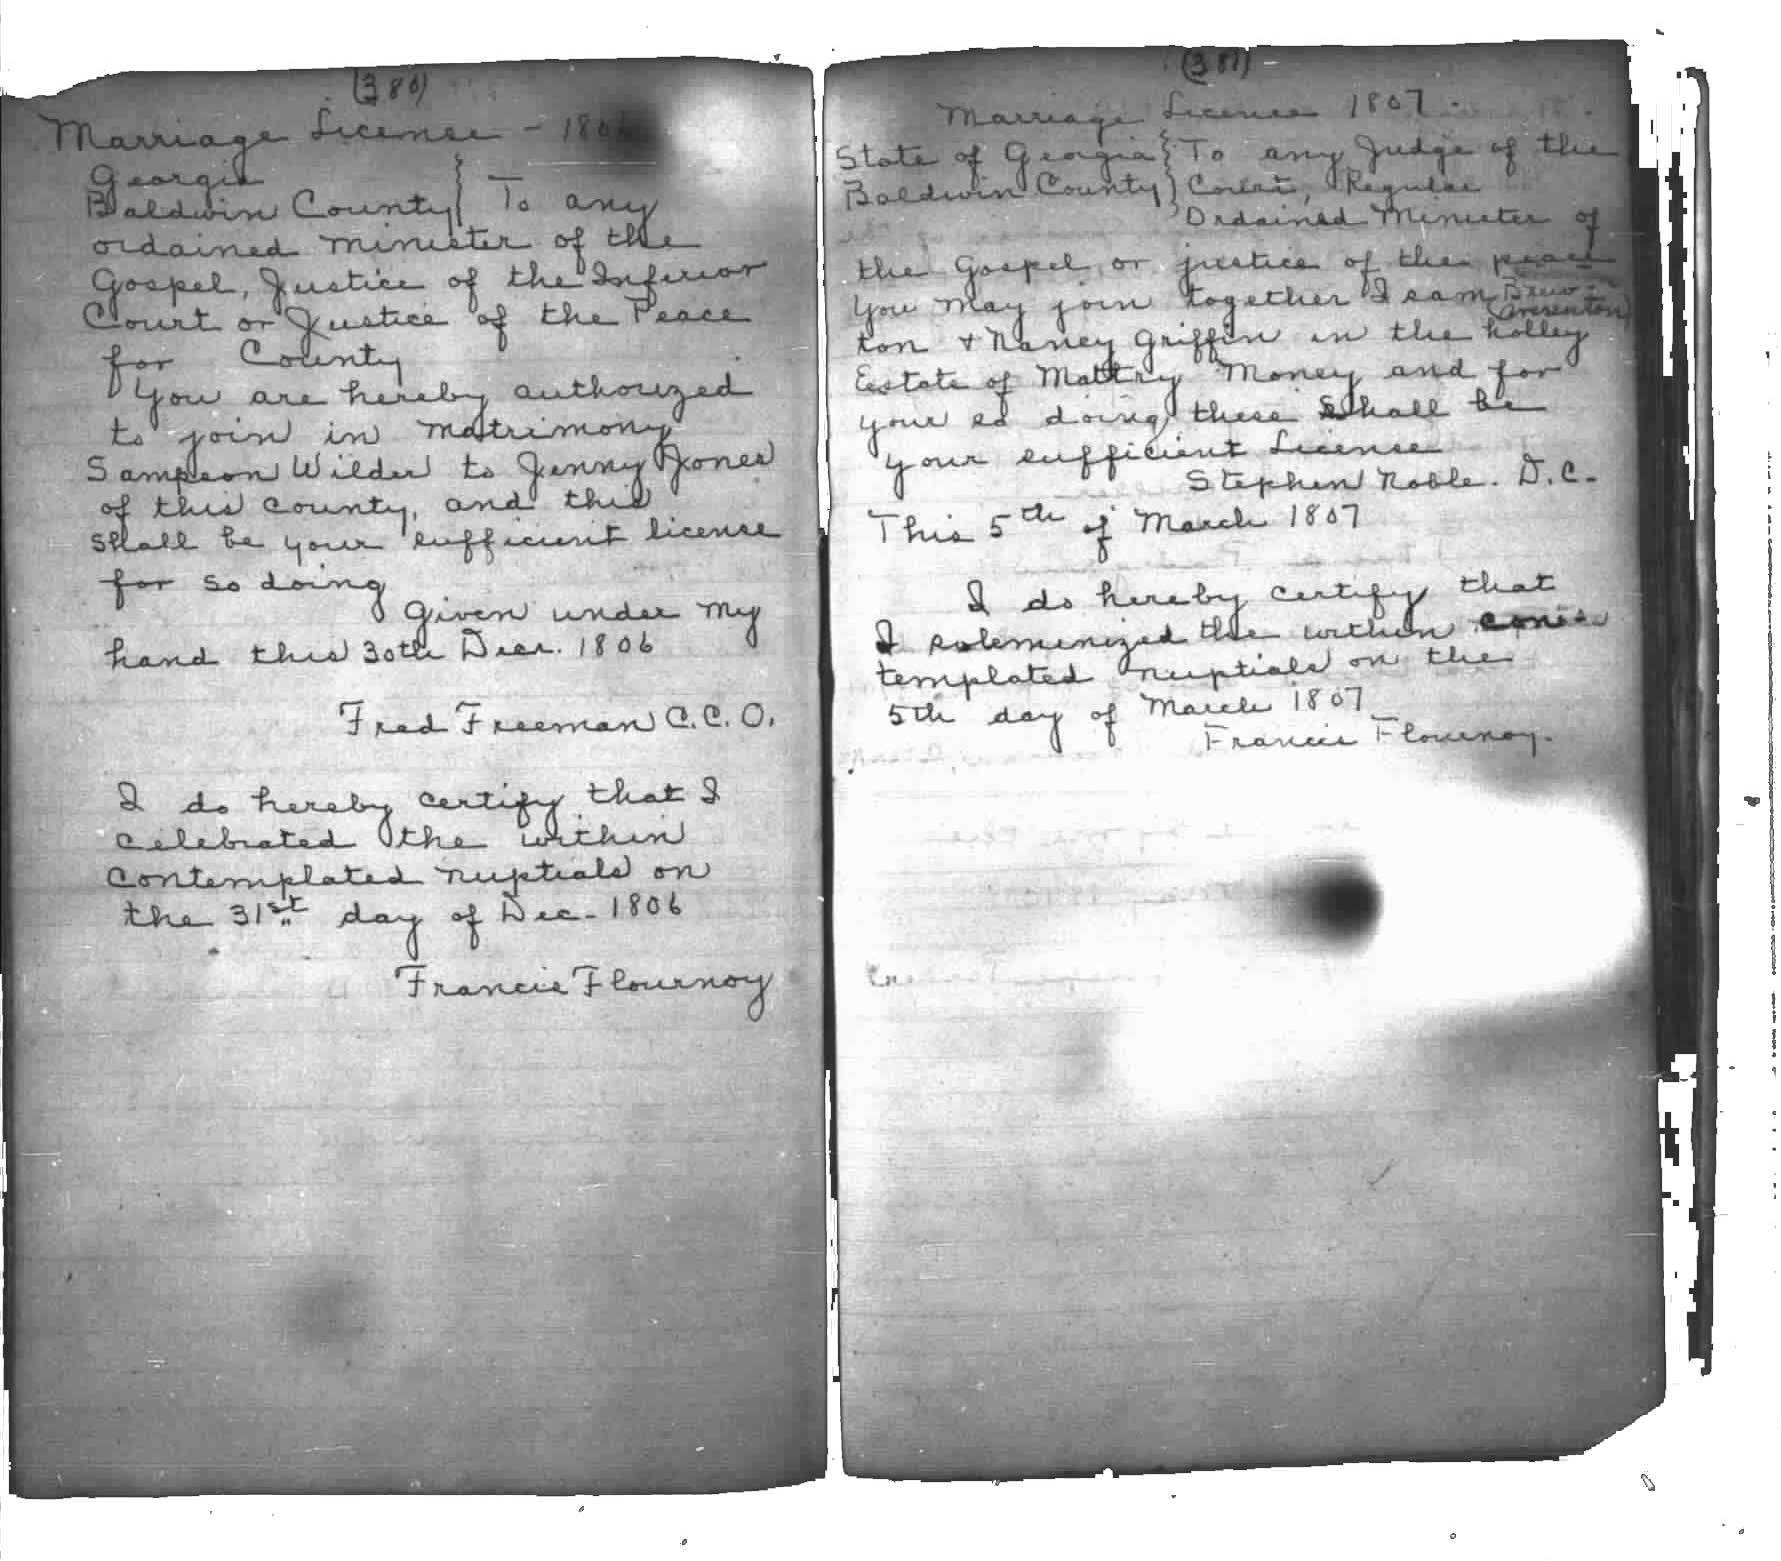 (380)
Marriage License - 1806
Georgia
Baldwin County } To any
ordained minister of the
Gospel, Justice of the Inferior
Court or Justice of the Peace
for County
You are hereby authorized
to join in matrimony
Sampson Wilder to Jenny Jones
of this county, and this
shall be your sufficient license
for so doing
Given under my
hand this 30th Decr. 1806
Fred Freeman C.C.O.
I do hereby certify that I
celebrated the within
contemplated nuptials on
the 31st day of Dec - 1806
Francis Flournoy
(381) -
Marriage Licence 1807.
State of Georgia } To any Judge of the
Baldwin County } Court, Regular
Ordained Minister of
the Gospel or justice of the peace
You may join together Isam Brew-
(Brewenton)
ton & Nancy Griffin in the holley
Estate of Mattry Money and for
your so doing these shall be
your sufficient License
Stephen Noble. D.C.
This 5th of March 1807
I do hereby certify that
I solemenized the within con
templated nuptials on the
5th day of March 1807
Francis Flournoy.